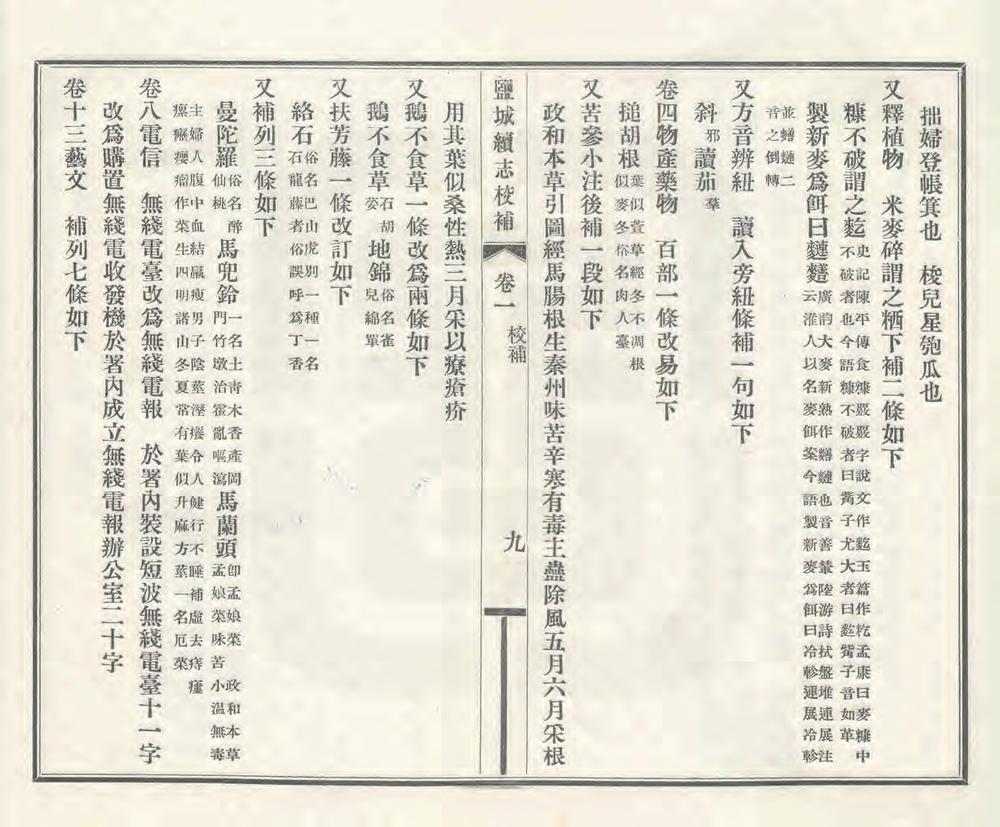 拙婦登帳箕也　梭兒星匏瓜也
又釋植物　米麥碎謂之粞下補二條如下
糠不破謂之麧史記陳平傳食糠覈覈字說文作麧玉篇作籺孟康曰麥糠中
不破者也今語糠不破者曰䴬子尤大者曰麧䴬子音如革
製新麥爲餌曰䴹䴺廣韵大麥新熟作䵇䴹也音善輦陸游詩拭盤堆連展注
云淮人以名麥餌案今語製新麥爲餌曰冷軫連展冷軫
並䵇䴹二
音之倒轉
又方音辨紐　讀入旁紐條補一句如下
斜邪讀茄羣
卷四物產藥物　百部一條改易如下
搥胡根葉似萱草經冬不凋根
似麥冬俗名肉人臺
又苦參小注後補一段如下
政和本草引圖經馬腸根生秦州味苦辛寒有毒主蠱除風五月六月采根
鹽城續志校補　卷一　校補　九
用其葉似桑性熱三月采以療瘡疥
又鵝不食草一條改爲兩條如下
鵝不食草石胡
荽　地錦俗名雀
兒綿單
又扶芳藤一條改訂如下
絡石俗名巴山虎別一種一名
石龍藤者俗誤呼爲丁香
又補列三條如下
曼陀羅俗名醉
仙桃　馬兜鈴一名土靑木香產岡
門竹墩治霍亂嘔瀉　馬蘭頭卽孟娘菜　政和本草
孟娘菜味苦小溫無毒
主婦人腹中血結羸瘦男子陰蕈溼癢令人健行不睡補虛去痔瘻
瘰癧癭瘤作菜生四明諸山冬夏常有葉似升麻方莖一名厄菜
卷八電信　無綫電臺改爲無綫電報　於署內裝設短波無綫電臺十一字
改爲購置無綫電收發機於署內成立無綫電報辦公室二十字
卷十三藝文　補列七條如下